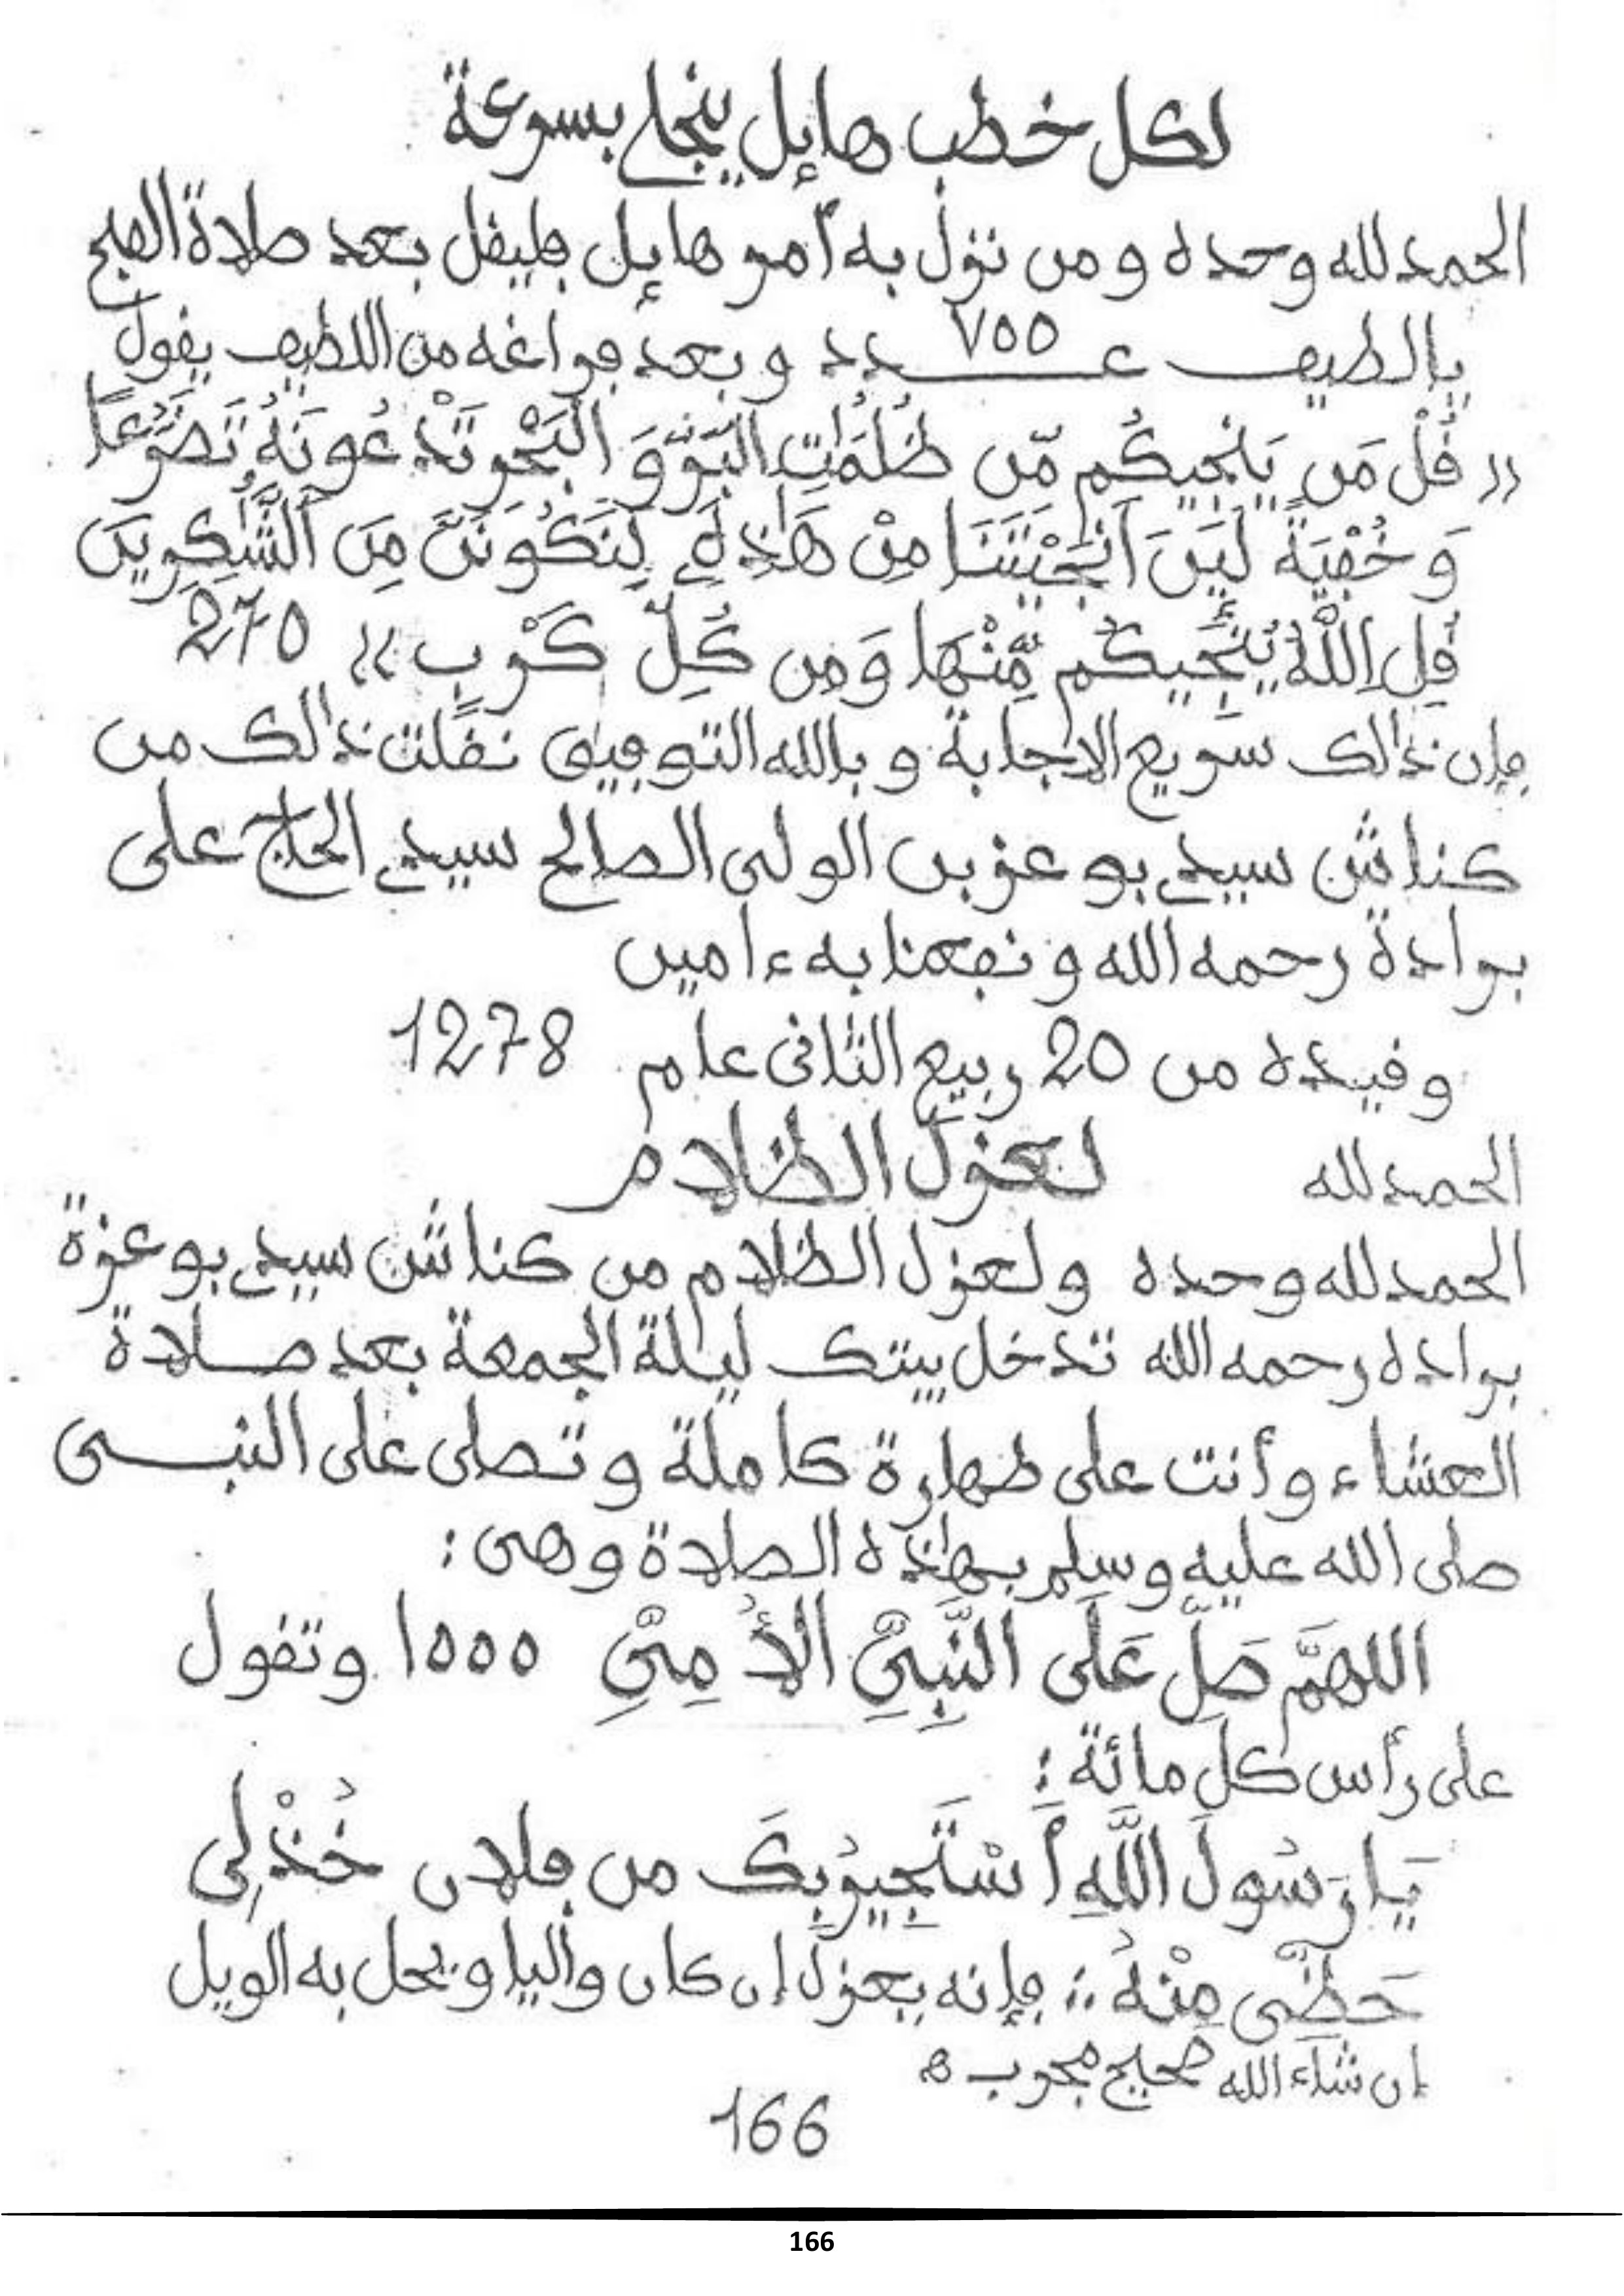 لكل خطب هايل ينجلي بسرعة
الحمد لله وحده ومن نزل به أمر هايل فليقل بعد صلاة الصبح
يا لطيف عـــدد ٧٥٥ وبعد فراغه من اللطيف يقول
(( قُلْ مَن يُنَجِّيكُم مِّن ظُلُمَٰتِ الْبَرِّ وَ الْبَحْرِ تَدْعُونَهُ تَضَرُّعاً
وَ خُفْيَةً لَّيِنَ اَنجَيْتَنَا مِنْ هَٰذِهِۦ لَنَكُونَنَّ مِنَ ٱلشَّٰكِرِينَ
قُلِ اِللَّهُ يُنَجِّيكُم مِّنْهَا وَمِن كُلِّ كَرْبٍ )) 270
فإن ذٰلك سريع الاجابة وبالله التوفيق نقلت ذٰلك من
كناش سيدي بو عز بن الولى الصالح سيدي الحاج على
برادة رحمه الله ونفعنا به ءامين
وقيده من 20 ربيع الثانى عام 1278
الحمد لله لعزل الظلام
الحمد لله وحده ولعزل الظلام من كناش سيدي بو عزة
براده رحمه الله تدخل بيتك ليلة الجمعة بعد صلاة
العشاء وأنت على طهارة كاملة وتصلى على النبى
صلى الله عليه وسلم بهٰذه الصلاة وهى :
اللهمَّ صَلِّ عَلَى النَّبِىِّ الأُمِىِّ ١٥٥٥ وتقول
على رأس كل مائة :
يَا رَسُولَ اللَّهِ أَسْتَجِيرُ بِكَ من فلان خُذْ لِى
حَظِّى مِنْهُ :: فإنه يعزل إن كان واليا ويحل به الويل
إن شاء الله صحيح مجرب ه
166
166